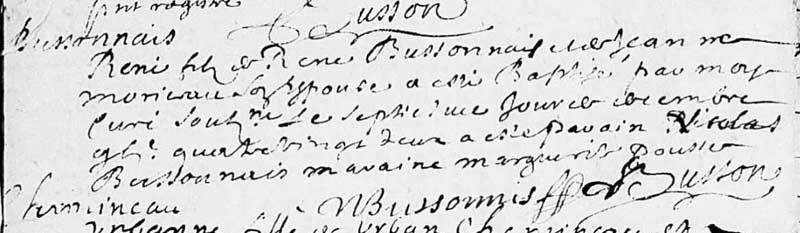 present registre Husson
Bussonnais
René filz de René Bussonnais et de Jeanne
moriceau son Espouse a esté Baptisé par moy
Curé soubs.né Le septiesme Jour de decembre
quatre vingt deux a esté parain Nicolas
Bussonnais maraine marguerit pousse
NBussonnais Husson
Chevinceau
Urbanne fille de Urban Chevinceau et